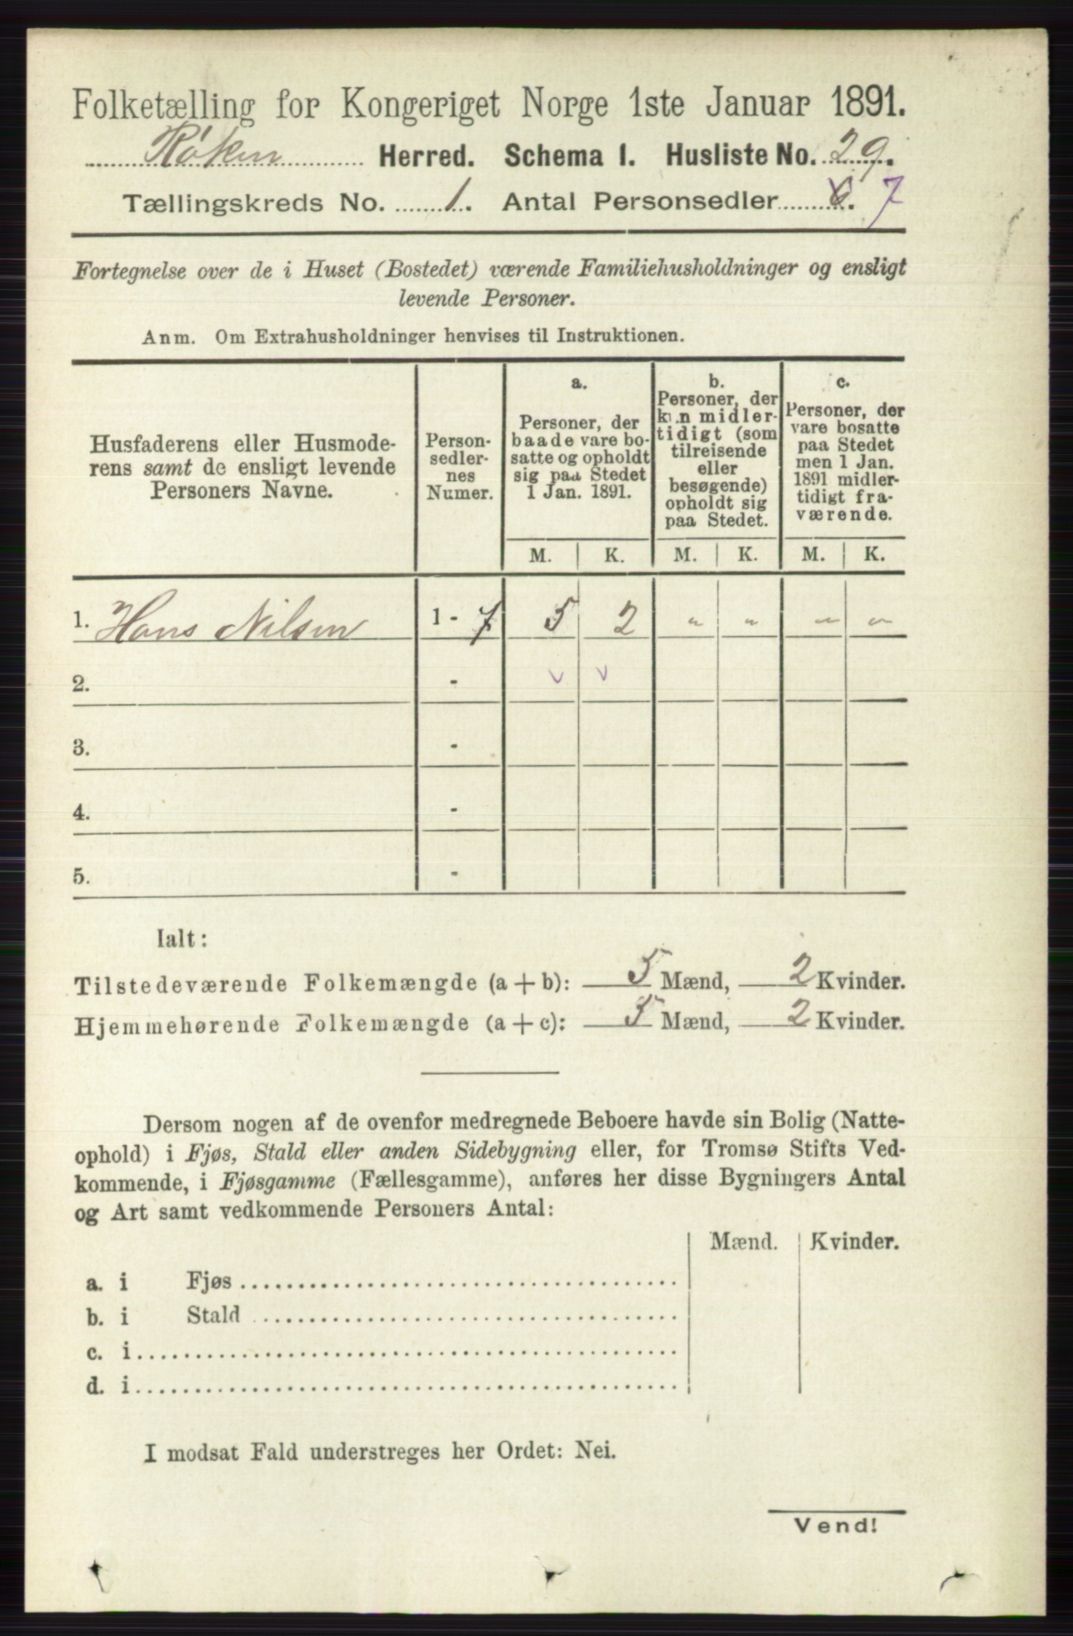 Folketælling for Kongeriget Norge 1ste Januar 1891.
Røken Herred. Schema 1. Husliste No. 29.
Tællingskreds No. 1. Antal Personsedler 6. 7
Fortegnelse over de i Huset (Bostedet) værende Familiehusholdninger og ensligt
levende Personer.
Anm. Om Extrahusholdninger henvises til Instruktionen.
Husfaderens eller Husmode-
rens samt de ensligt levende
Personers Navne.
Person-
sedler-
nes
Numer.
a.
Personer, der
baade vare bo-
satte og opholdt
sig paa Stedet
1 Jan. 1891.
b.
Personer, der
kun midler-
tidigt (som
tilreisende
eller
besøgende)
opholdt sig
paa Stedet.
c.
Personer, der
vare bosatte
paa Stedet
men 1 Jan.
1891 midler-
tidigt fra-
værende.
M. K. M. K. M. K.
1. Hans Nilsen 1 - 7 5 2 „ „ „ „
2. - v v
3. -
4. -
5. -
Ialt:
Tilstedeværende Folkemængde (a + b): 5 Mænd, 2 Kvinder.
Hjemmehørende Folkemængde (a + c): 5 Mænd, 2 Kvinder.
Dersom nogen af de ovenfor medregnede Beboere havde sin Bolig (Natte-
ophold) i Fjøs, Stald eller anden Sidebygning eller, for Tromsø Stifts Ved-
kommende, i Fjøsgamme (Fællesgamme), anføres her disse Bygningers Antal
og Art samt vedkommende Personers Antal:
Mænd. Kvinder.
a. i Fjøs
b. i Stald
c. i
d. i
I modsat Fald understreges her Ordet: Nei.
Vend!